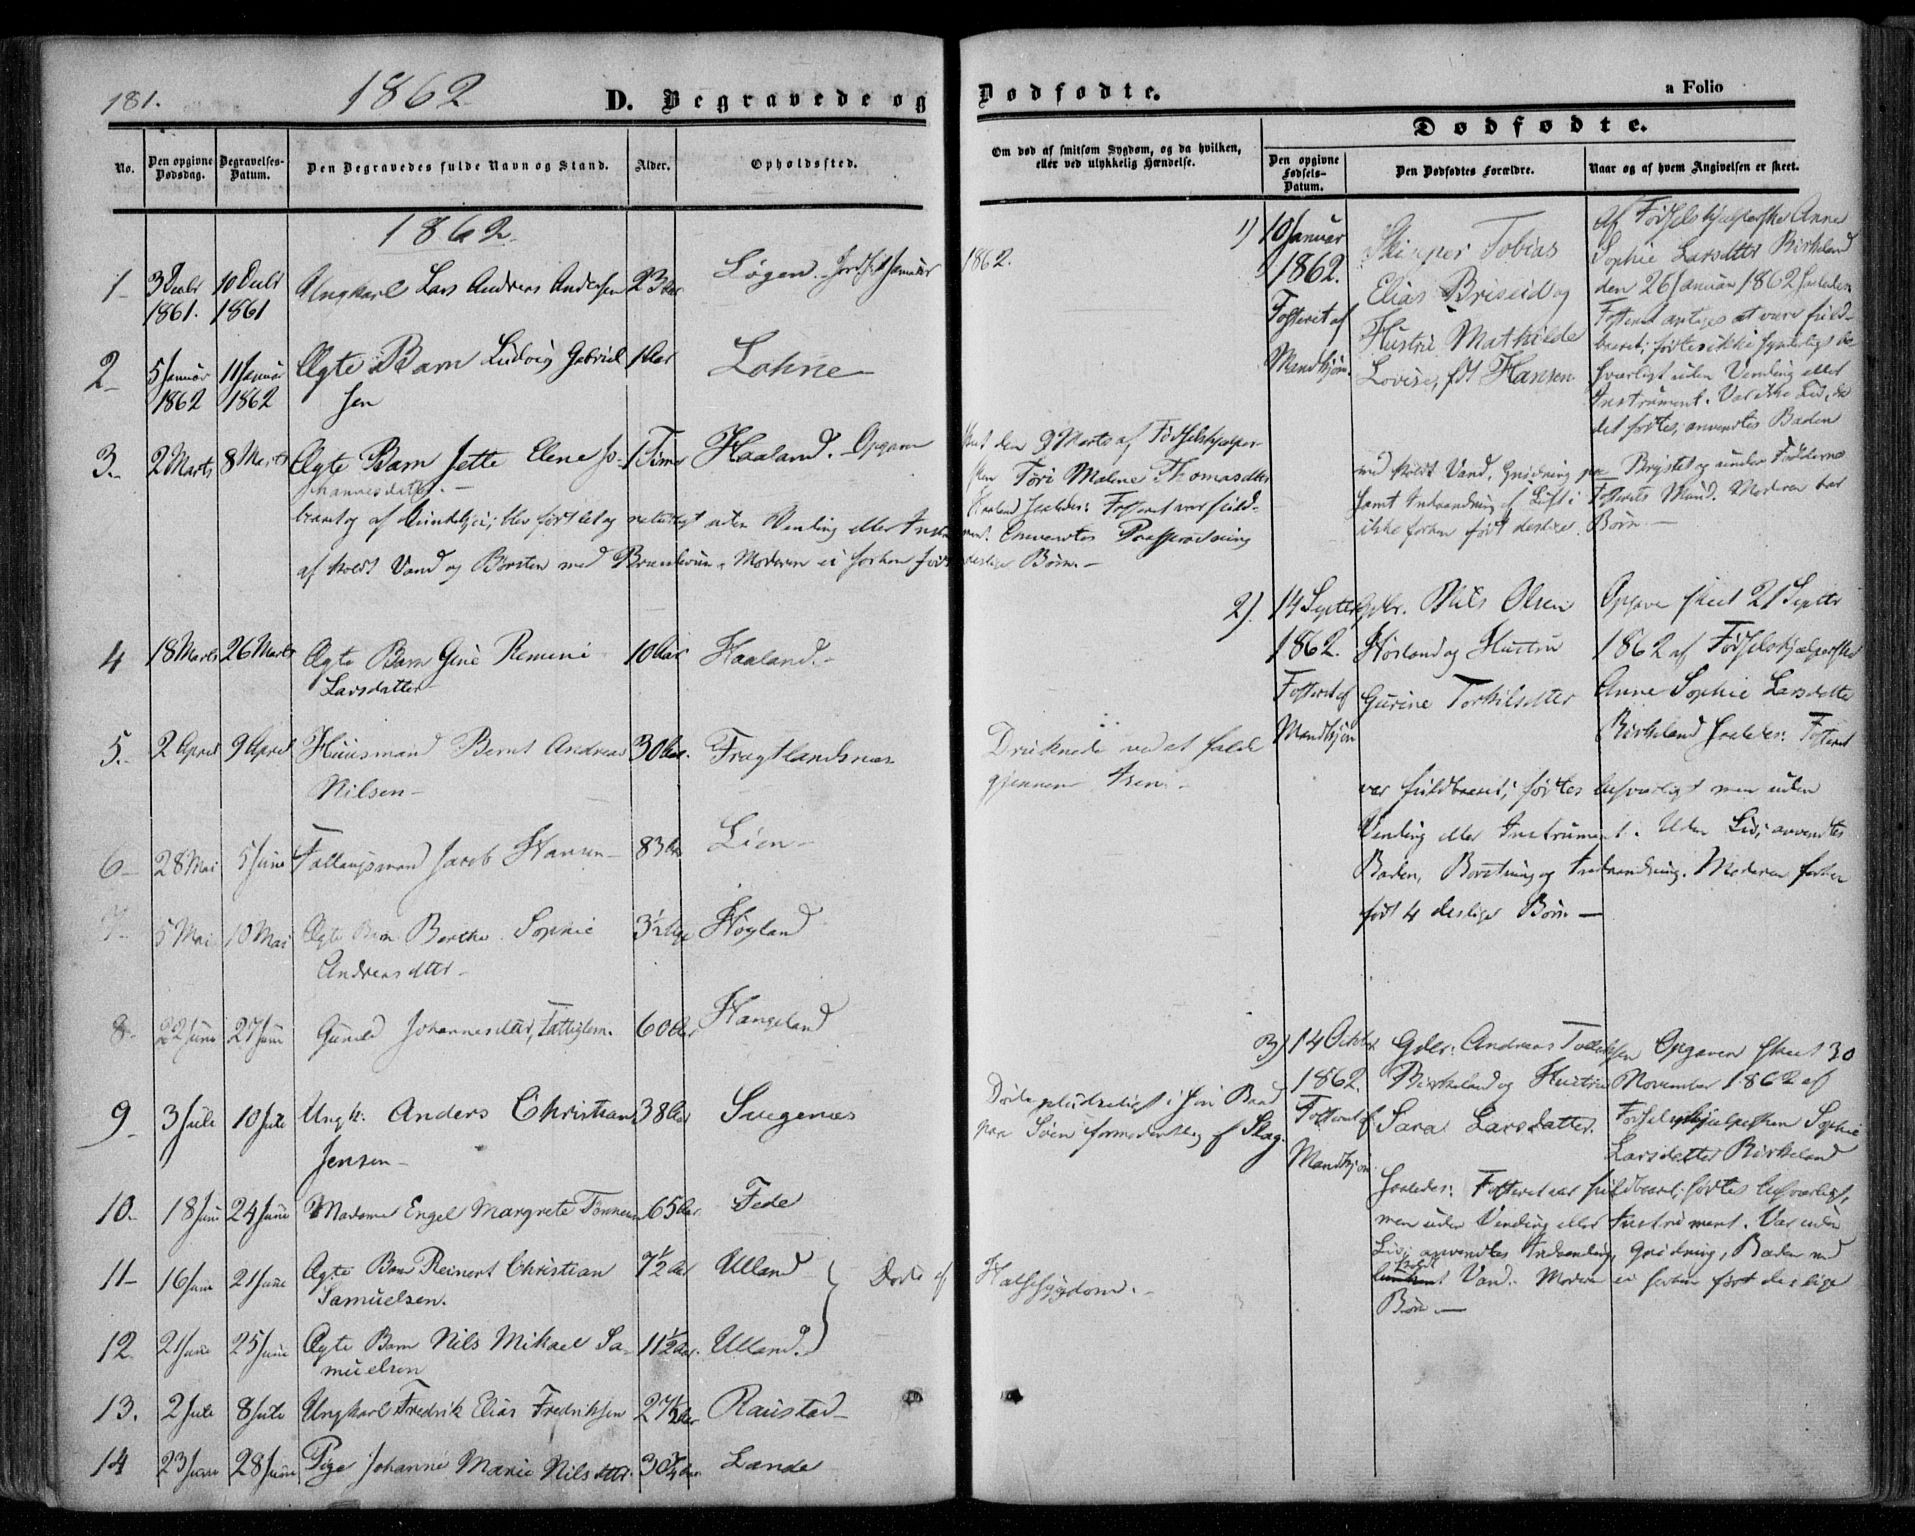 181.
1862
D. Begravede og
Dødfødte.
a Folio
No.
Den opgivne Dødsdag.
Begravelses-Datum.
Den Begravedes fulde Navn og Stand.
Alder.
Opholdssted.
Om død af smitsom Sygdom, og da hvilken, eller ved ulykkelig Hændelse.
Dødfødte.
Den opgivne Fødsels-Datum.
Den Dødfødtes Forældre.
Naar og af hvem Angivelsen er skeet.
1862.
1 3 Decbr 1861. 10 Decbr 1861 Ungkarl Lars Andreas Andersen 23 Aar Løgen. Januar 1862.
2 5 Januar 1862 11 Januar 1862 Ægte Barn Ludvig Gabriel 1 Aar Lohne
3. 2 Marts 8 Marts Ægte Barn Jette Elene Jo- 1 Time Haaland. Opgave
hannesdatter.
skeet den 9 Marts af Fødselshjælper-
sken Tori Malene Thomasdtter
Haaland saaledes: Fosteret var fuld-
baaret og af Qvindekjøn; blev født let og naturligt uden Vending eller Instrument. Anvendtes
af koldt Vand og Børsten med Brændeviin. Moderen ei forhen født deslige Børn.
4 18 Marts 26 Marts Ægte Barn Gine 10 Aar Haaland
Larsdatter
5. 2 April 9 April Huusmand Bernt Andreas 30 Aar. Fragtlandsnæs
Nilsen
Druknede ved at falde
gjennem Isen
6 28 Mai 5 Juni Jacob Hansen 83 Aar Lien
7 5 Mai 10 Mai Ægte Barn Berthe Sophie 3½ Høyland
Andreasdtter
8. 22 Juni 27 Juni Gunild Johannesdtter, Fattiglem. 60 Aar Hangeland
9 3 Juli 10 Juli Ungk: Anders Christian 38 Aar Svegenæs
Jensen
Døde pludseligt i sin Baad
paa Søen formodentlig af Slag.
10. 18 Juni 24 Juni Madame Engel Margrete Tønnesen 65 Aar Fede
11 16 Juni 21 Juni Ægte Barn Reinert Christian 7½ Aar Ulland
Samuelsen.
Døde af Halssygdom.
12. 21 Juni 25 Juni Ægte Barn Nils Mikael Sa- 11½ Aar. Ulland
muelsen
13. 2 Juli 8 Juli Ungkarl Fredrik Elias Fredriksen Raustad
14 23 Juni 28 Juni Pige Johanne Marie Nilsdtter. 30¾ Aar. Lande
1) 10 Januar
1862.
Fosteret af
Mandkjøn.
Skipper Tobias
Elias Briseid og
Hustru Mathilde
Lovise, fdt Hansen
Af Fødselshjælperske Anne
Sophie Larsdtter Birkeland
den 26 Januar 1862 saaledes:
Fosteret antages at være fuld-
baaret; fødtes ikke
uden Vending eller
Instrument. Var ikke Liv, da
det fødtes, anvendtes Baden
med koldt Vand, Gnidning paa Brystet og under Fødderne
samt Indaanding af Luft i Fosterets Mund. Moderen har
ikke forhen født deslige Børn
2). 14 Septbr
1862.
Fosteret af
Mandkjøn
Gdbr. Nils Olsen
Hørland og Hustru
Gurine Torkilsdtter
Opgave skeet 21 Septbr
1862 af Fødselshjælperske
Anne Sophie Larsdatter
Birkeland saaledes: Fosteret
var fuldbaaret; fødtes besværligt men uden
Vending eller Instrument. Uden Liv; anvendtes
Baden, Børstning og Indaanding. Moderen forhen
født 4 deslige Børn
3) 14 Octbr.
1862.
Fosteret af
Mandkjøn
Gdbr: Andreas
Birkeland og Hustru
Sara Larsdatter.
Opgaven skeet 30
November 1862 af
Fødselshjælpersken Sophie
Larsdatter Birkeland
saaledes: Fosteret var fuldbaaret; fødtes besværligt,
men uden Vending eller Instrument. Var uden
Liv; anvendtes Indaanding, Gnidning, Baden med
koldt Vand. Moderen ei forhen født deslige
Børn